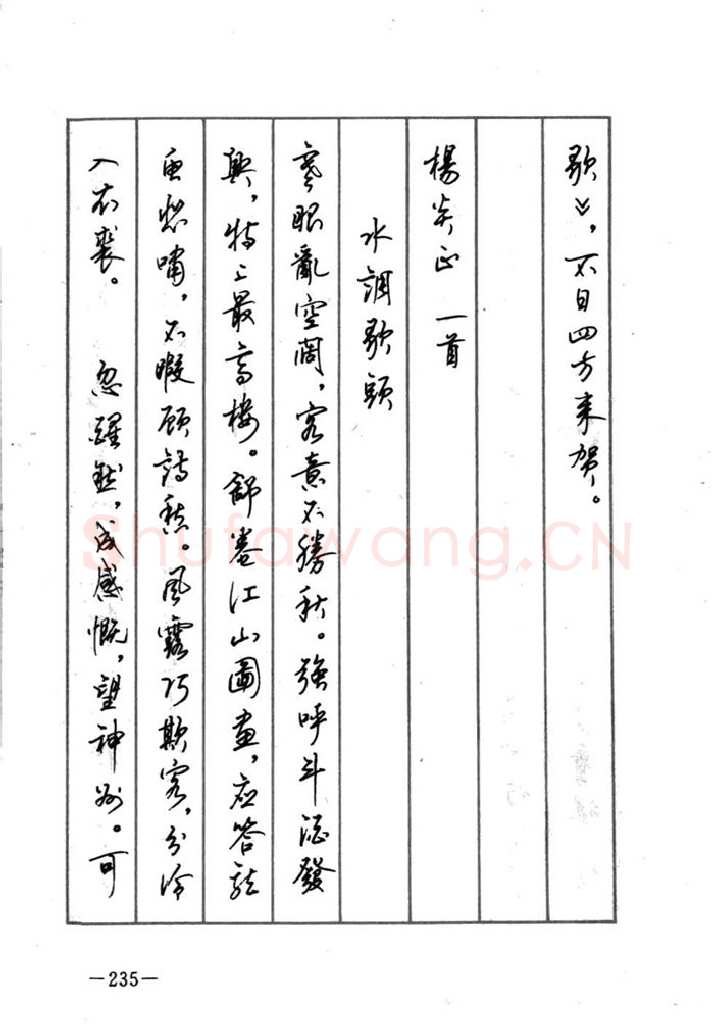 歌〻，不日四方来贺。
楊炎正 一首
水調歌頭
寒眼亂空闊，客意不勝秋。強呼斗酒發
興，特上最高樓。舒卷江山圖畫，应答龍
魚悲嘯，不暇顾詩愁。風露巧欺客，分冷
入衣裘。 忽醒然，成感慨，望神州。可
Shufawang.CN
—235—